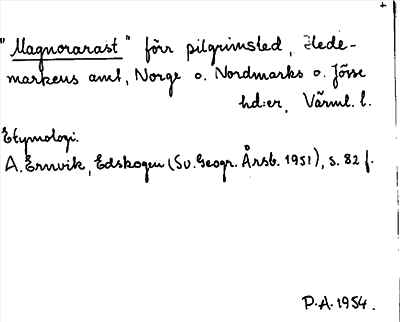 "Magnorarast" förr pilgrimsled, Hede-
markens amt, Norge o. Nordmarks o. Jösse
hd:er, Värml. l.
Etymologi.
A. Ernvik, Edskogen (Sv. Geogr. Årsb. 1951), s. 82 f.
P.A. 1954.